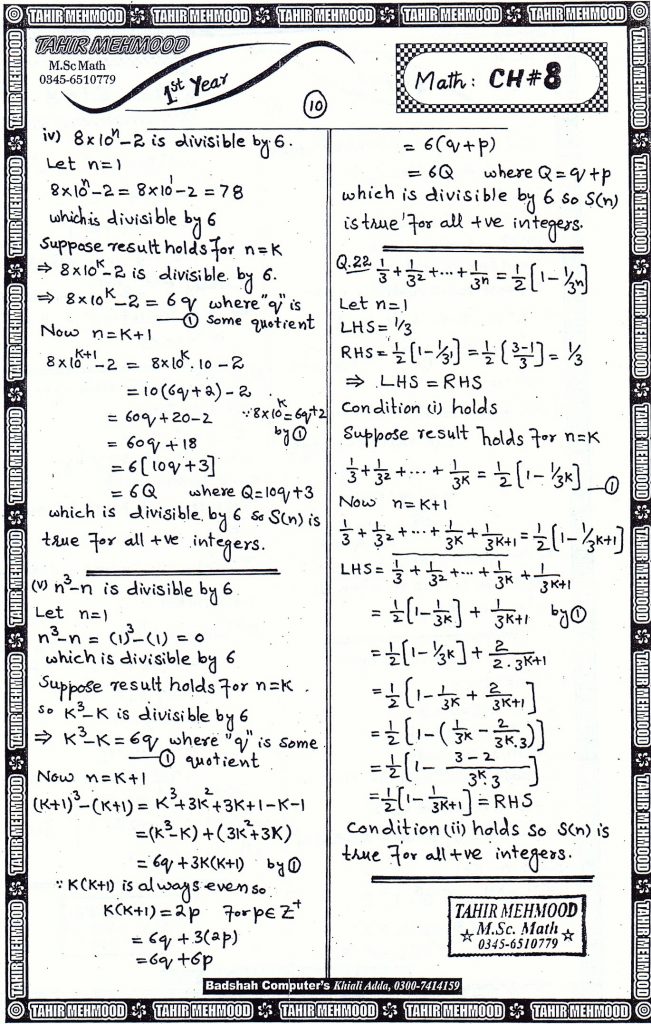 TAHIR MEHMOOD TAHIR MEHMOOD TAHIR MEHMOOD TAHIR MEHMOOD TAHIR MEHMOOD
TAHIR MEHMOOD
M.Sc Math
0345-6510779
1st Year
10
Math: CH#8
iv) 8×10ⁿ-2 is divisible by 6.
Let n=1
8×10ⁿ-2 = 8×10¹-2 = 78
which is divisible by 6
Suppose result holds for n=K
⇒ 8×10ᴷ-2 is divisible by 6.
⇒ 8×10ᴷ-2 = 6q where "q" is
—① some quotient
Now n=K+1
8×10ᴷ⁺¹-2 = 8×10ᴷ.10 - 2
= 10(6q+2) - 2
= 60q+20-2 ∵8×10ᴷ=6q+2
by ①
= 60q+18
= 6[10q+3]
= 6Q where Q=10q+3
which is divisible by 6 so S(n) is
true for all +ve integers.
(v) n³-n is divisible by 6
Let n=1
n³-n = (1)³-(1) = 0
which is divisible by 6
Suppose result holds for n=K
so K³-K is divisible by 6
⇒ K³-K=6q where "q" is some
—① quotient
Now n=K+1
(K+1)³-(K+1) = K³+3K²+3K+1-K-1
=(K³-K)+(3K²+3K)
= 6q+3K(K+1) by ①
∵ K(K+1) is always even so
K(K+1)=2p for p∈Z⁺
= 6q+3(2p)
=6q+6p
= 6(q+p)
= 6Q where Q=q+p
which is divisible by 6 so S(n)
is true for all +ve integers.
Q.22 1/3+1/3²+...+1/3ⁿ=1/2[1-1/3ⁿ]
Let n=1
LHS=1/3
RHS=1/2[1-1/3¹]=1/2[(3-1)/3]=1/3
⇒ LHS = RHS
Condition (i) holds
Suppose result holds for n=K
1/3+1/3²+...+1/3ᴷ=1/2[1-1/3ᴷ] —①
Now n=K+1
1/3+1/3²+...+1/3ᴷ+1/3ᴷ⁺¹=1/2[1-1/3ᴷ⁺¹]
LHS=1/3+1/3²+...+1/3ᴷ+1/3ᴷ⁺¹
=1/2[1-1/3ᴷ]+1/3ᴷ⁺¹ by ①
=1/2[1-1/3ᴷ]+2/2.3ᴷ⁺¹
=1/2[1-1/3ᴷ+2/3ᴷ⁺¹]
=1/2[1-(1/3ᴷ-2/3ᴷ.3)]
=1/2[1-(3-2)/3ᴷ.3]
=1/2[1-1/3ᴷ⁺¹]=RHS
Condition (ii) holds so S(n) is
true for all +ve integers.
TAHIR MEHMOOD
M.Sc. Math
0345-6510779
Badshah Computer's Khiali Adda, 0300-7414159
TAHIR MEHMOOD TAHIR MEHMOOD TAHIR MEHMOOD TAHIR MEHMOOD TAHIR MEHMOOD
TAHIR MEHMOOD TAHIR MEHMOOD TAHIR MEHMOOD TAHIR MEHMOOD TAHIR MEHMOOD TAHIR MEHMOOD TAHIR MEHMOOD TAHIR MEHMOOD
TAHIR MEHMOOD TAHIR MEHMOOD TAHIR MEHMOOD TAHIR MEHMOOD TAHIR MEHMOOD TAHIR MEHMOOD TAHIR MEHMOOD TAHIR MEHMOOD